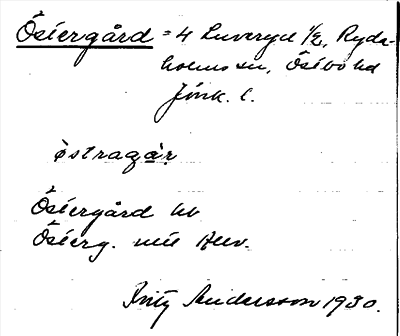 Östergård = 4 Luveryd 1/2, Ryds-
holms sn, Östbo hd
Jönk. l.
östragàr
Östergård hb
Österg.
Fritz Andersson 1930.